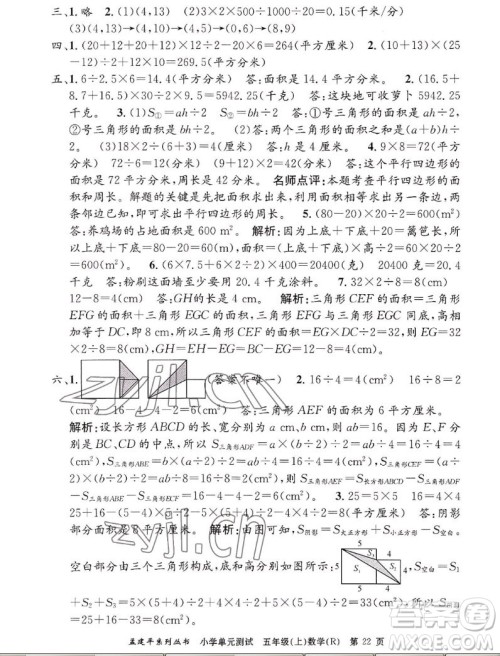 三、1. 略　2. (1)(4,13)　(2)(3×50)÷500÷1000÷20=0.15(千米/分)
(3)(4,13)→(7,13)→(7,10)→(10,10)
四、1. (20+12+20+16)×12÷2-20×16÷2=264(平方厘米)　2. (10+10)×(25
-10)÷2+12×10=269.5(平方厘米)
五、1. 6÷2.5×6=14.4(平方米)　答:面积是 14.4 平方米。　2. (16.5+
8.7+16.5)×30÷2×9.5=5942.25(千克)　答:这块地可收萝卜 5942.25
千克。　3. (1)S①=ah÷2　S②=bh÷2　答:①号三角形的面积是 ah÷2(m²),
②号三角形的面积是 bh÷2(m²)。　(2)答:两个三角形的面积之和是(a+b)h÷
2。　(3)18×2÷(5+4)=4(厘米)　答:h 是 4 厘米。　4. 9×8=72(平方
厘米)　72÷6=12(厘米)　(12+9)×2=42(厘米)　答:这个平行四边形的
面积为 72 平方厘米,周长为 42 厘米。　名师点评:本题考查平行四边形的面
积和周长。解题的关键是先扒出平行四边形的面积,再求出未知的一条边,两
条邻边已知,即可求出平行四边形的周长。　5. (80-20)×20÷2=600(m²)
答:养鸡场的占地面积是 600 m²。　解析:上底+下底+20=篱笆总长,所
以上底+下底=80-20=60(m),面积=(上底+下底)×高÷2=60×20÷2=
600(m²)。　6. (6×7.5+6×2÷2)×400=20400(克)　20400 克=20.4
千克　答:粉刷这面墙至少要用 20.4 千克涂料。　7. 32×2÷8=8(cm)
12-8=4(cm)　答:GH 的长是 4 cm。　解析:三角形 CEF 的面积=三角形
EFG 的面积+三角形 EGC 的面积。三角形 EFG 与三角形 EGC 同底,高相
加等于 DC,即一共是 8 cm,面积之和等于 EG×DC÷2=32(cm²),则 EG=32
×2÷8=8(cm),GH=EH-EG=BC-EG=12-8=4(cm)。
六、1.　(答案不唯一)　2. 16÷4=4(cm²)　16÷8=2
(cm²)　16-4-4-2=6(cm²)　答:三角形 AEF 的面积是 6 cm²。
解析:设长方形 ABCD 的长、宽分别为 a cm、b cm,则 ab=16,因为 E、F 分别
是 BC、DC 的中点,所以 S三角形ABE=b×(a÷2)÷2=ab÷4=4(cm²),S三角形ADF
=a×(b÷2)÷2=ab÷4=4(cm²),S三角形ECF=(a÷2)×(b÷2)÷2=ab÷8=
2(cm²),S三角形AEF=S长方形ABCD-S三角形ABE-S三角形ADF-S三角形ECF=16-4-4-2=6(cm²)。　3. 5×5=25　4×4=16　4×4÷
25+16-8-12.5-12.5=8(平方厘米)　答:阴影
部分面积是 8 平方厘米。　解析:S阴影=S大正方形+S小正方形-S空白。
空白部分由三个三角形构成,分别求出三个三角形
的面积,可得出空白部分的面积,S阴影=S大正方形
+S小正方形-S空白=5×5+4×4-S1-S2-S3=
25+16-8-12.5-12.5=8(平方厘米)。
5 4 5 S1 S2 S3 4 5 4
孟建平系列丛书　小学单元测试　五年级(上)数学(R)　第 22 页